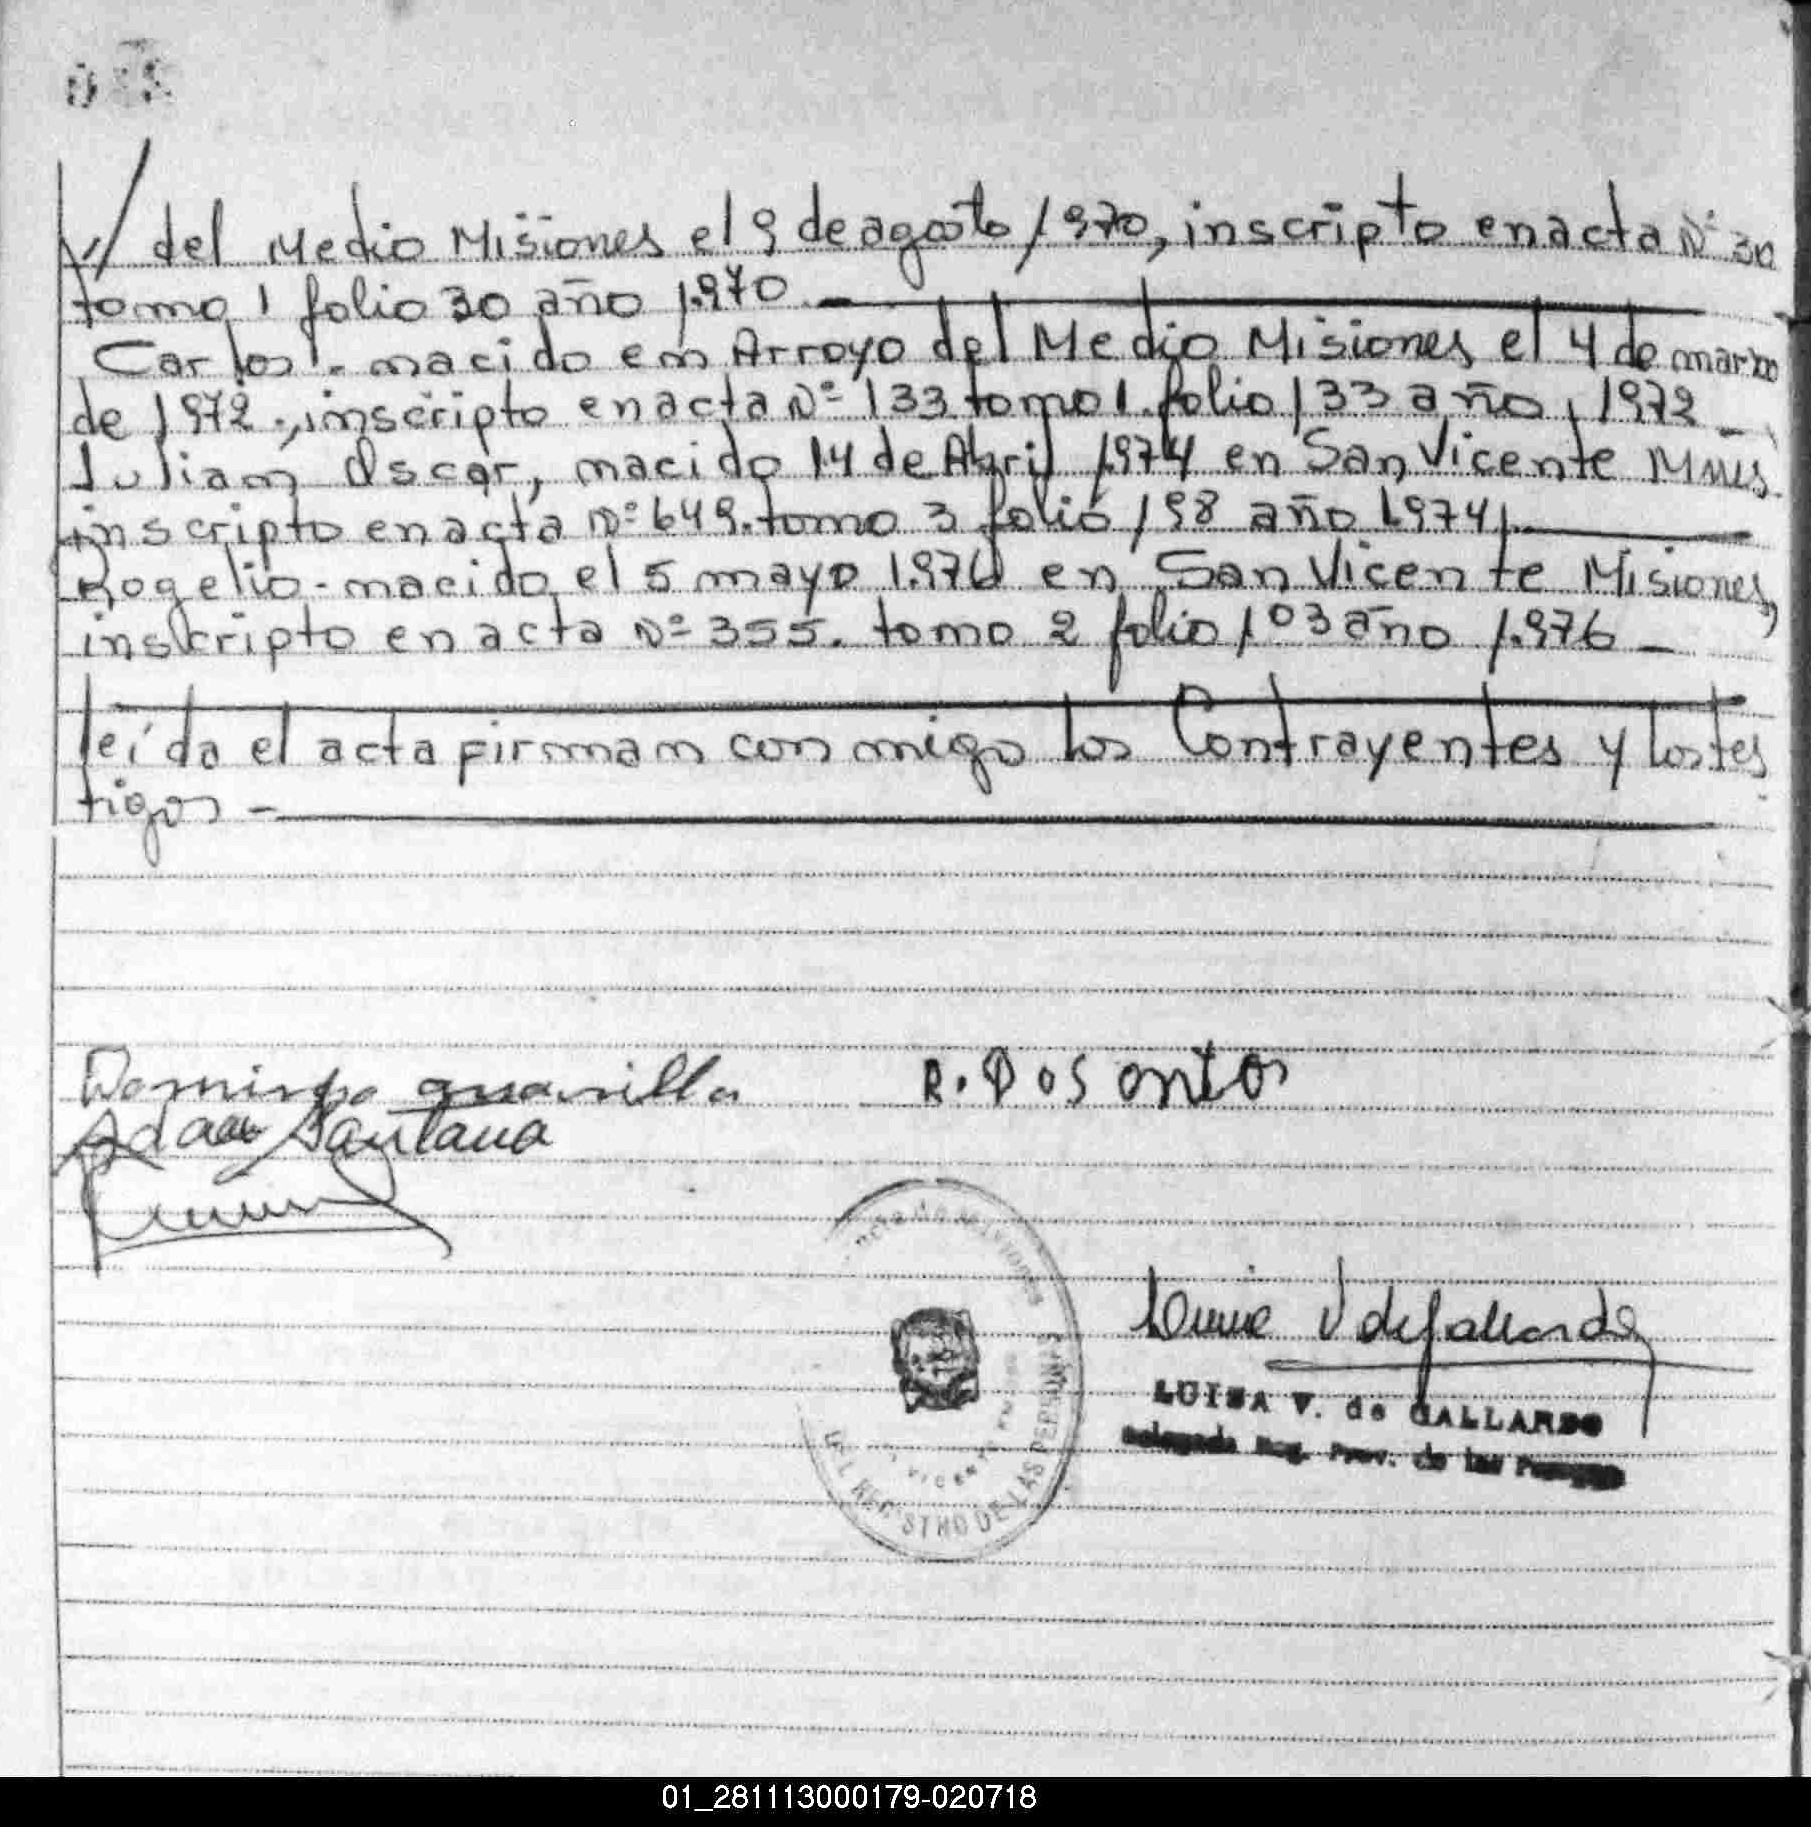 // del Medio Misiones el 9 de agosto 1970, inscripto en acta Nº 30
tomo 1 folio 30 año 1.970 -
Carlos - nacido en Arroyo del Medio Misiones el 4 de marzo
de 1972., inscripto en acta Nº 133 tomo 1. folio 133 año 1972 -
Julian Oscar, nacido 14 de Abril 1974 en San Vicente Mnes.
inscripto en acta Nº 649. tomo 3 folio 198 año 1974,
Rogelio - nacido el 5 mayo 1.976 en San Vicente Misiones,
inscripto en acta Nº 355. tomo 2 folio 103 año 1.976 -
leída el acta firman conmigo los Contrayentes y los tes
tigos -
Domingo
R. Dos antos
Santana
V de Gallardo
LUISA V. de GALLARDO
Delegada Reg. Prov. de las Personas
DEL REGISTRO DE LAS PERSONAS
VICENTE
01_281113000179-020718